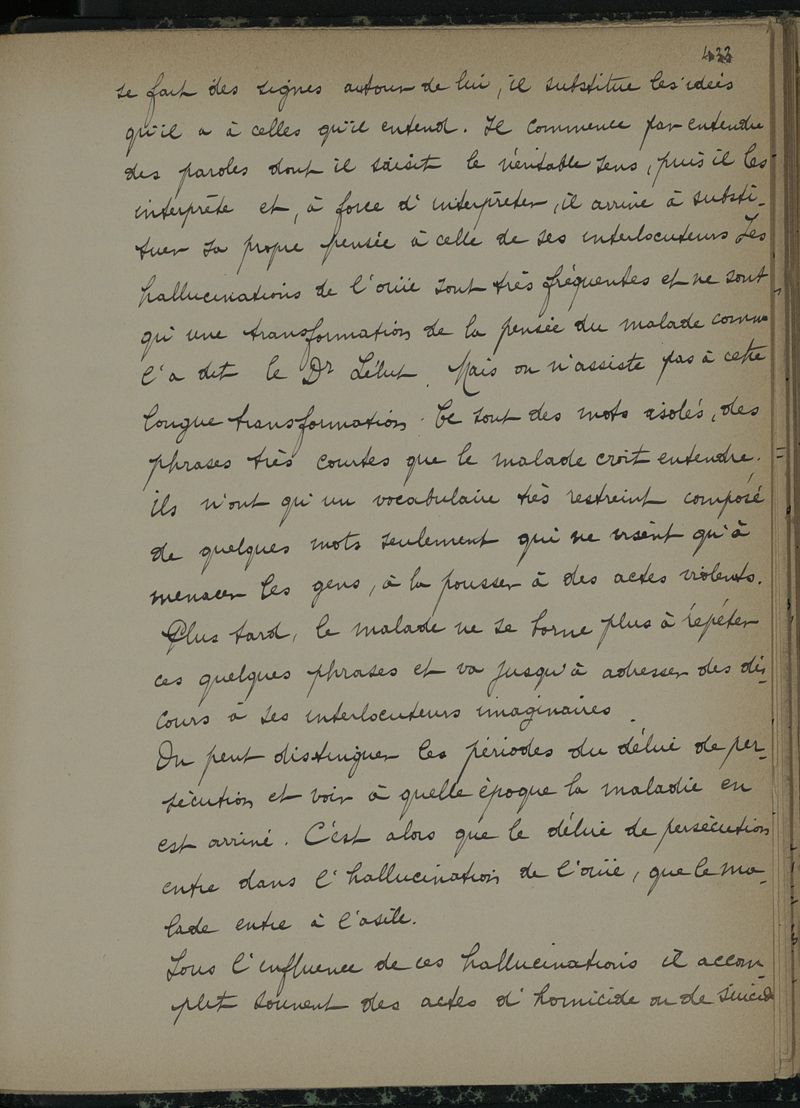 433
se fait des signes autour de lui, il substitue les idées
qu'il a à celles qu'il entend. Il commence par entendre
des paroles dont il saisit le véritable sens, puis il les
interprète et, à force d'interpréter, il arrive à substi-
tuer sa propre pensée à celle de ses interlocuteurs Les
hallucinations de l'ouïe sont très fréquentes et ne sont
qu'une transformation de la pensée du malade comme
l'a dit le Dr Lélut. Mais on n'assiste pas à cette
longue transformation. Ce sont des mots isolés, des
phrases très courtes que le malade croit entendre.
Ils n'ont qu'un vocabulaire très restreint composé
de quelques mots seulement qui ne visent qu'à
menacer les gens, à la pousser à des actes violents.
Plus tard, le malade ne se borne plus à répéter
ces quelques phrases et va jusqu'à adresser des dis-
cours à ses interlocuteurs imaginaires.
On peut distinguer les périodes du délire de per-
sécution et voir à quelle époque la maladie en
est arrivé. C'est alors que le délire de persécution
entre dans l'hallucination de l'ouïe, que le ma-
lade entre à l'asile.
Sous l'influence de ces hallucinations il accom-
plit souvent des actes d'homicide ou de suicide